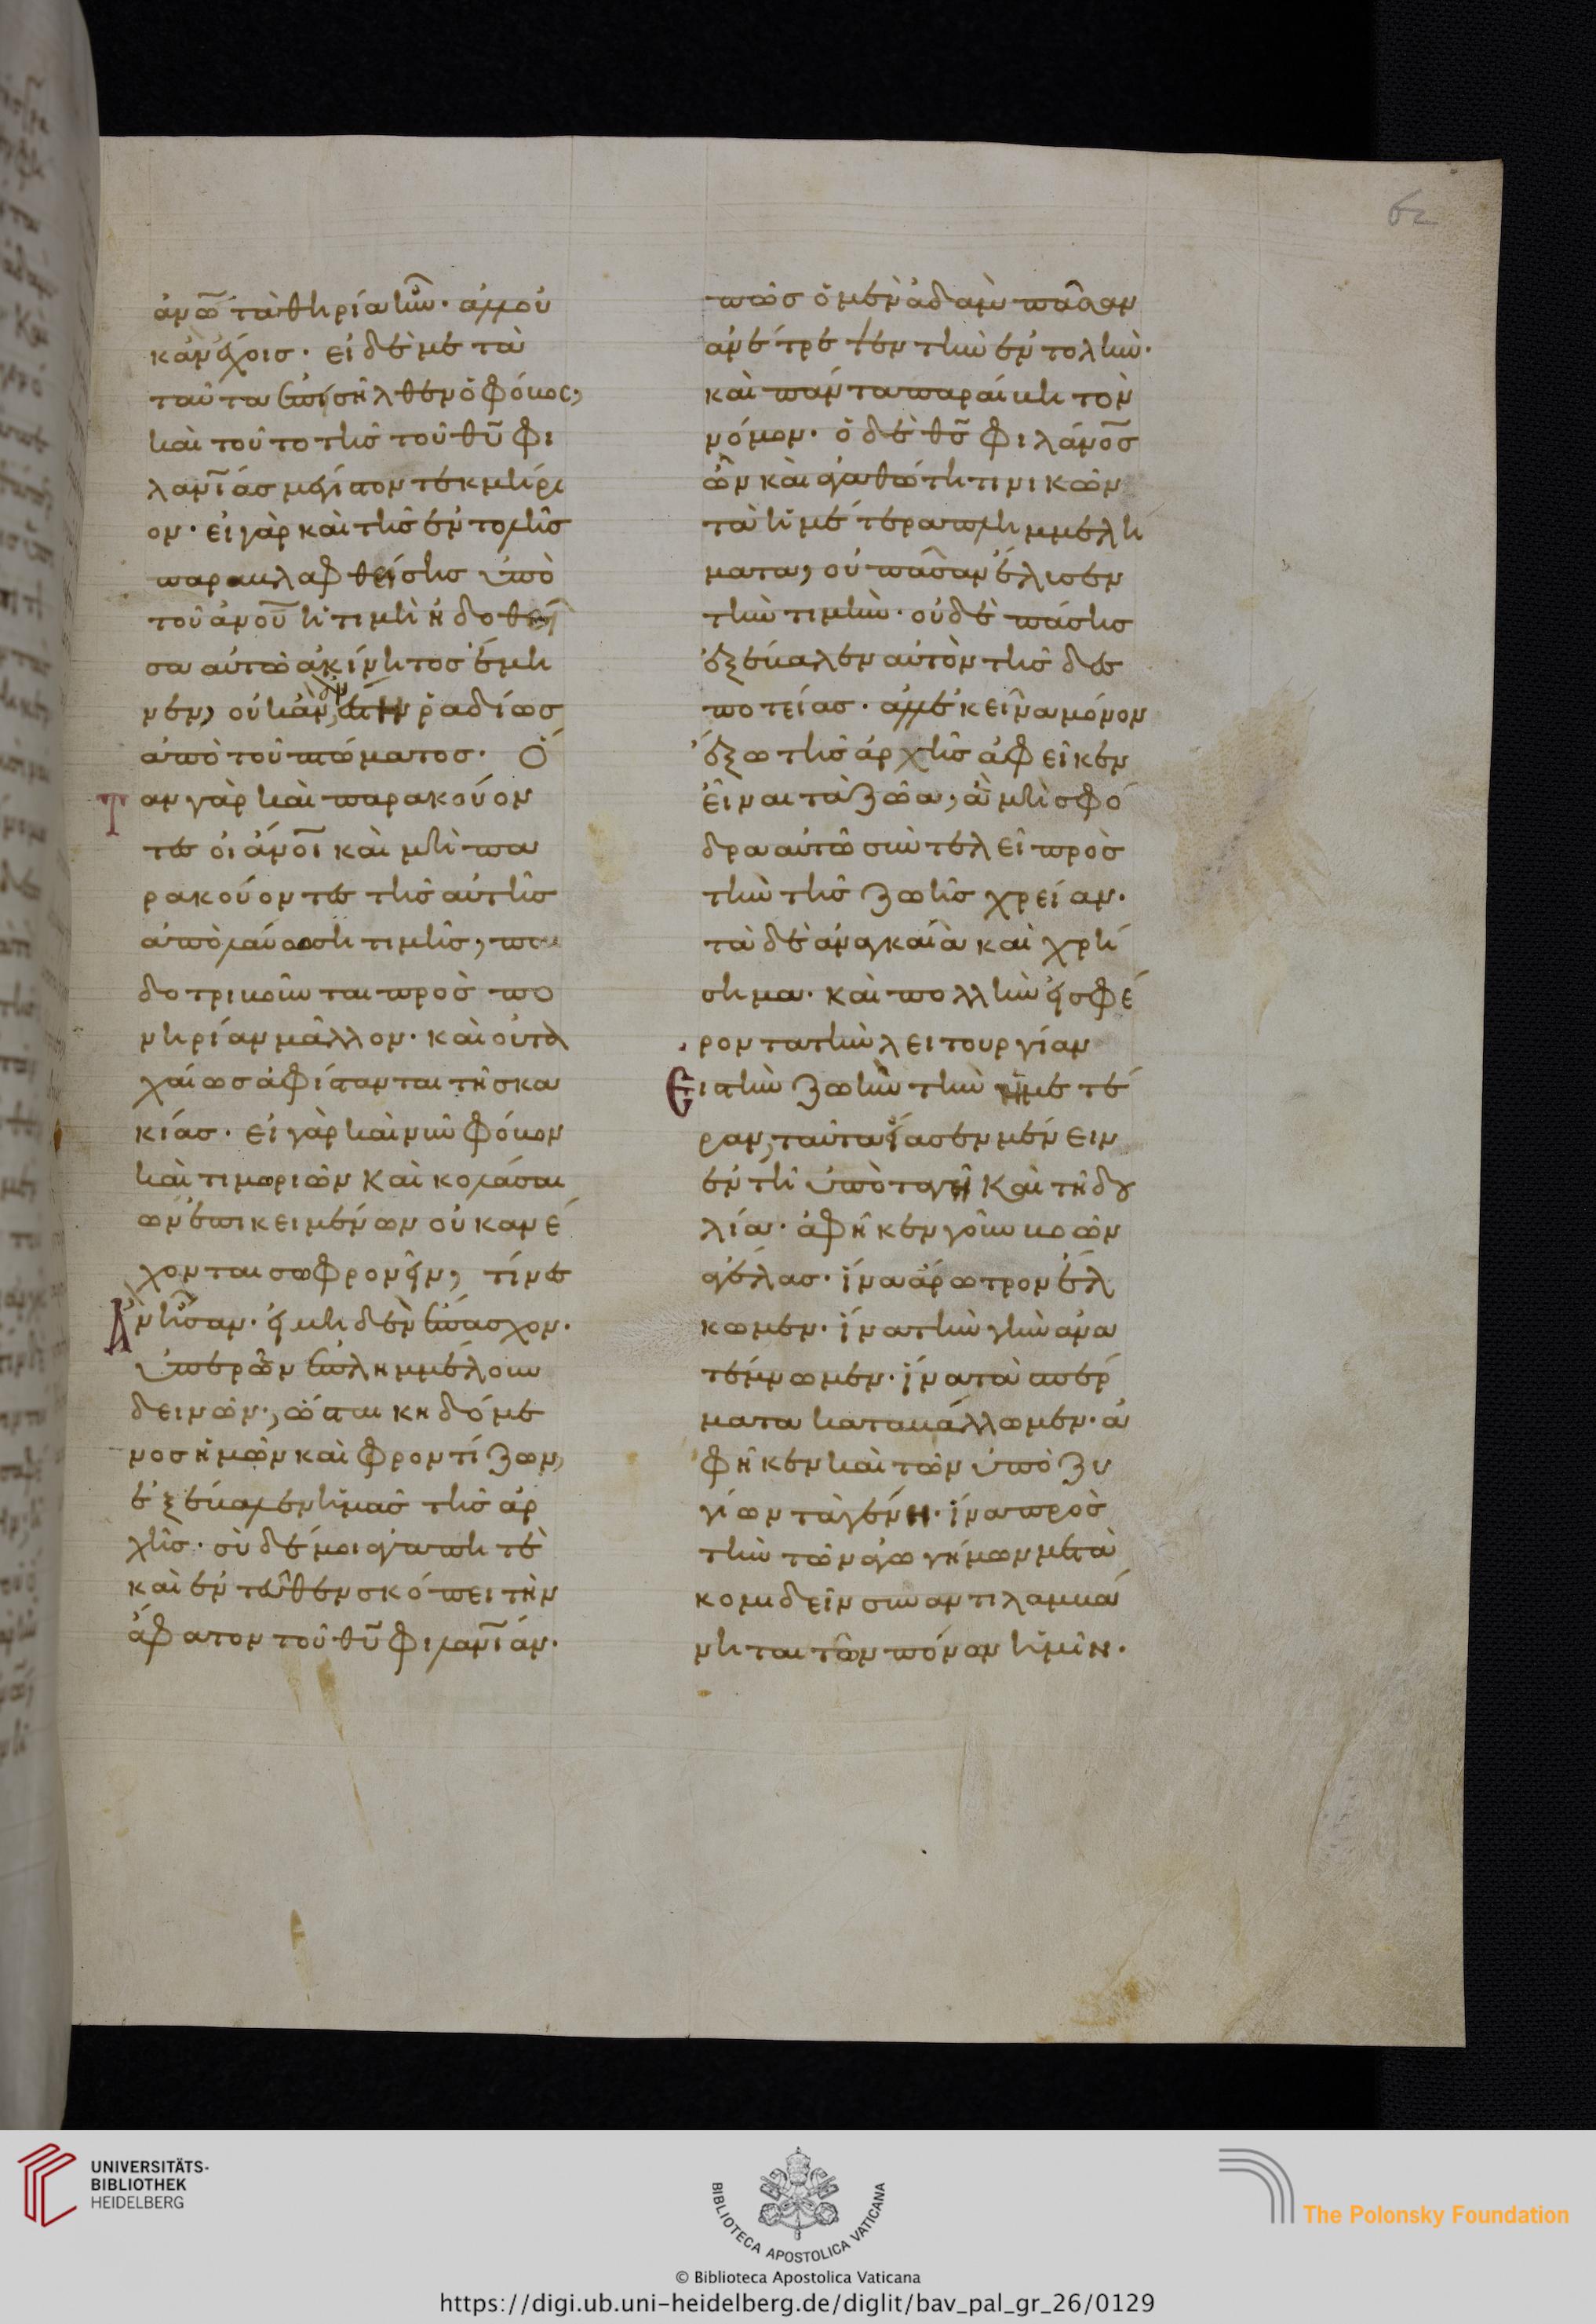 62
ἀνω̅ τὰ θηρία ἦν· ἀλλ' οὐ
κἂν ἔχοις· εἰ δὲ μετὰ
ταῦτα ἐπεισῆλθεν ὁ φόβος,
καὶ τοῦτο τῆς τοῦ θυ̅ φι
λανι̅ας μέγιστον τεκμήρι
ον· εἰ γὰρ καὶ τῆς ἐντολῆς
παρασαλευθείσης ὑπὸ
τοῦ ἀνου̅ ἡ τιμὴ ἡ δοθεῖ
σα αὐτῶ ἀκίνητος ἔμει
νεν, οὐκ ἂν
ῥαδίως
ἀπὸ τοῦ πτώματος. Ὅ
ταν γὰρ καὶ παρακούον
τες οἱ ἀνοι̅ καὶ μὴ πα
ρακούοντες τῆς αὐτῆς
ἀπολαύωσι τιμῆς, παι
δοτριβοῦνται πρὸς πο
νηρίαν μᾶλλον· καὶ οὐ τα
χαίως ἀφίστανται τῆς κα
κίας· εἰ γὰρ καὶ νῦν φόβων
καὶ τιμωριῶν καὶ κολάσε
ων ἐπικειμένων οὐκ ἀνέ
χονται σωφρονεῖν, τίνες
ἂν ἦσαν· εἰ μηδὲν ἔπασχον.
ὑπὲρ ὧν ἐπλημμέλουν
δεινῶν., ὥστε κηδόμε
νος ἡμῶν καὶ φροντίζων,
ἐξέβαλεν ἡμᾶς τῆς ἀρ
χῆς· σὺ δέ μοι ἀγαπητὲ
καὶ ἐντεῦθεν σκόπει τὴν
ἄφατον τοῦ θυ̅ φιλανι̅αν.
πῶς ὁ μὲν ἀδὰμ πᾶσαν
ἀνέτρεψεν τὴν ἐντολήν.
καὶ πάντα παρέβη τὸν
νόμον· ὁ δὲ θς̅ φιλάνος̅
ὢν καὶ ἀγαθότητι νικῶν
τὰ ἡμέτερα πλημμελή
ματα, οὐ πᾶσαν ἔλυσεν
τὴν τιμήν· οὐδὲ πάσης
ἐξέβαλεν αὐτὸν τῆς δεσ
ποτείας· ἀλλ' ἐκεῖνα μόνον
ἔξω τῆς ἀρχῆς ἀφεῖκεν
εἶναι τὰ ζῶα, ἃ μὴ σφό
δρα αὐτῶ συντελεῖ πρὸς
τὴν τῆς ζωῆς χρείαν.
τὰ δὲ ἀναγκαῖα καὶ χρή
σιμα· καὶ πολλὴν εἰσφέ
ροντα τὴν λειτουργίαν
Εἰς τὴν ζωὴν τὴν ἡμετέ
ραν, ταῦτα εἴασεν μένειν
ἐν τῆ ὑποταγῆ καὶ τῆ δου
λία· ἀφῆκεν γοῦν βοῶν
ἀγέλας· ἵνα ἄρωτρον ἕλ
κωμεν· ἵνα τὴν γῆν ἀνα
τέμνωμεν· ἵνα τὰ σπέρ
ματα καταβάλλωμεν· ἀ
φῆκεν καὶ τῶν ὑποζυ
γίων τὰ γένη· ἵνα πρὸς
τὴν τῶν ἀγωγήμων μετα
κομιδεῖν συναντιλαμβά
νηται τῶν πόνων ἡμῖν.
UNIVERSITÄTS-
BIBLIOTHEK
HEIDELBERG
BIBLIOTECA APOSTOLICA VATICANA
The Polonsky Foundation
© Biblioteca Apostolica Vaticana
https://digi.ub.uni-heidelberg.de/diglit/bav_pal_gr_26/0129